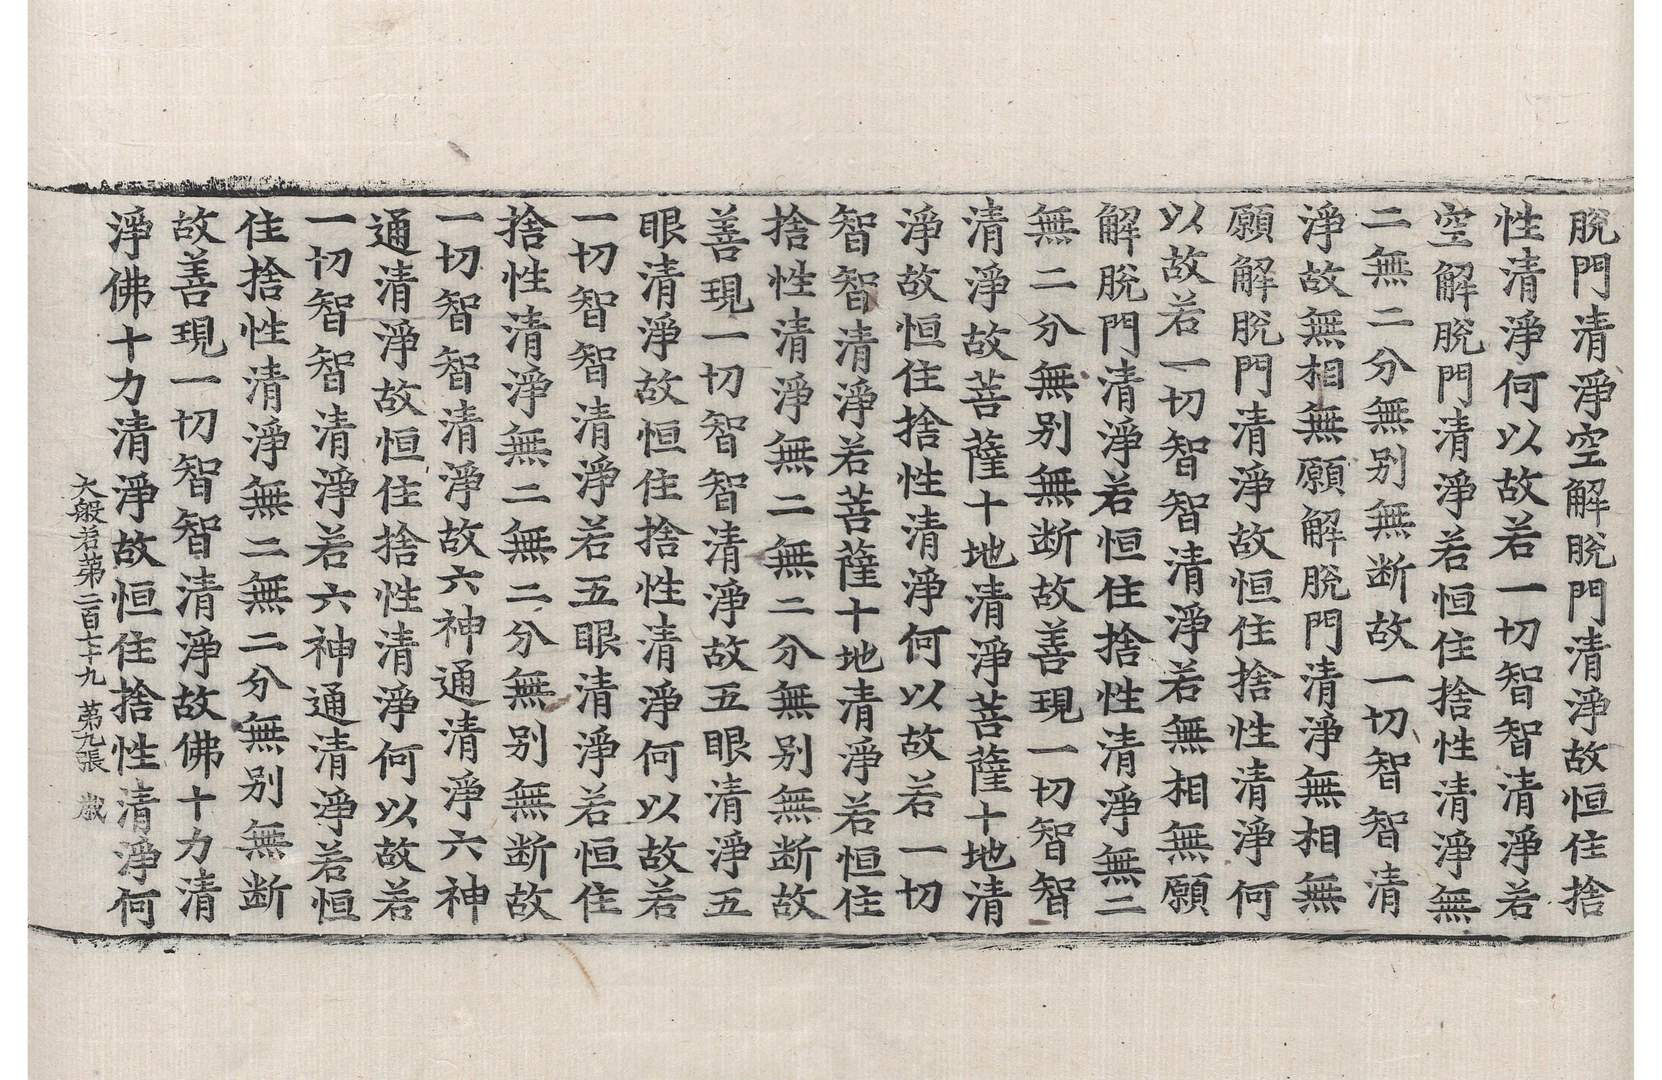 脫門清淨空解脫門清淨故恒住捨
性清淨何以故若一切智智清淨若
空解脫門清淨若恒住捨性清淨無
二無二分無别無断故一切智智清
淨故無相無願解脫門清淨無相無
願解脫門清淨故恒住捨性清淨何
以故若一切智智清淨若無相無願
解脫門清淨若恒住捨性清淨無二
無二分無别無断故善現一切智智
清淨故菩薩十地清淨菩薩十地清
淨故恒住捨性清淨何以故若一切
智智清淨若菩薩十地清淨若恒住
捨性清淨無二無二分無别無断故
善現一切智智清淨故五眼清淨五
眼清淨故恒住捨性清淨何以故若
一切智智清淨若五眼清淨若恒住
捨性清淨無二無二分無别無断故
一切智智清淨故六神通清淨六神
通清淨故恒住捨性清淨何以故若
一切智智清淨若六神通清淨若恒
住捨性清淨無二無二分無别無断
故善現一切智智清淨故佛十力清
淨佛十力清淨故恒住捨性清淨何
大般若第二百七十九 第九張 嵗